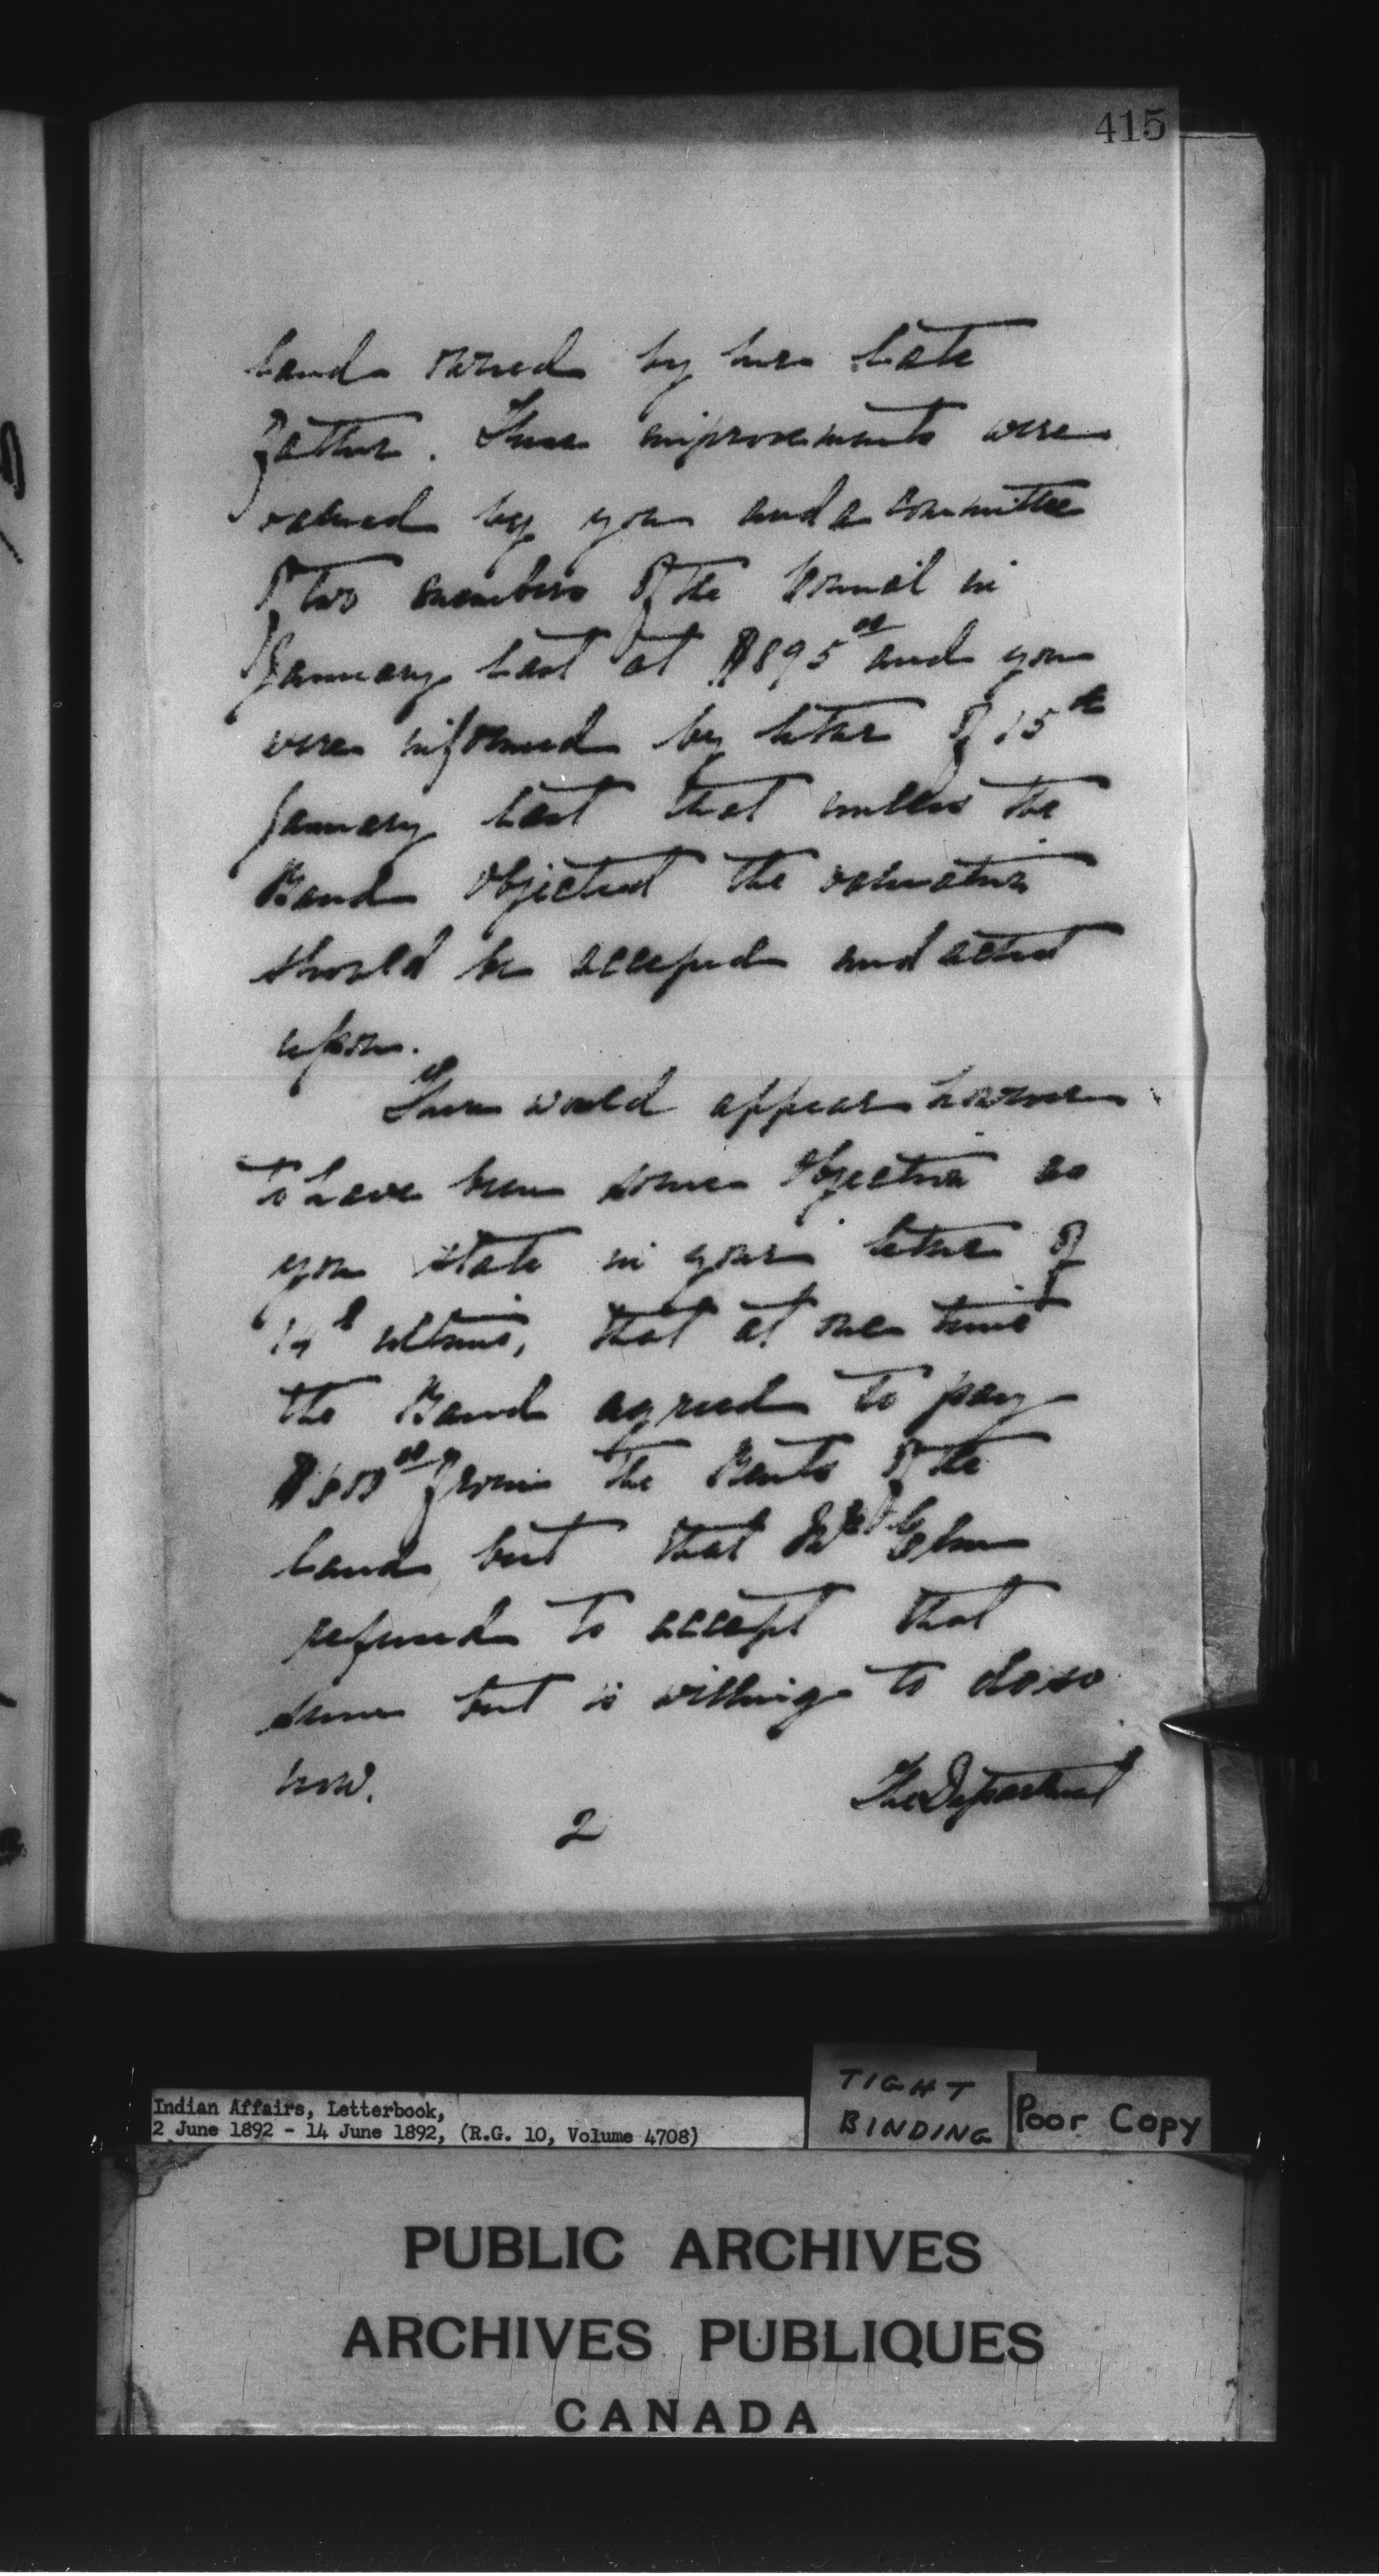 415
land owned by her late
father. These improvements were
valued by you and a Committee
of two members of the Council in
January last at $895.00 and you
were informed by letter of 15th
January last that unless the
Band objected the valuation
should be accepted and acted
upon.
There would appear however
to have been some objection as
you state in your letter of
14th ultimo, that at one time
the Band agreed to pay
$600.00 from the Rents of the
land but that Mrs Elm
refused to accept that
sum but is willing to do so
now.
The Department
2
Indian Affairs, Letterbook,
2 June 1892 - 14 June 1892, (R.G. 10, Volume 4708)
TIGHT
BINDING
Poor Copy
PUBLIC ARCHIVES
ARCHIVES PUBLIQUES
CANADA